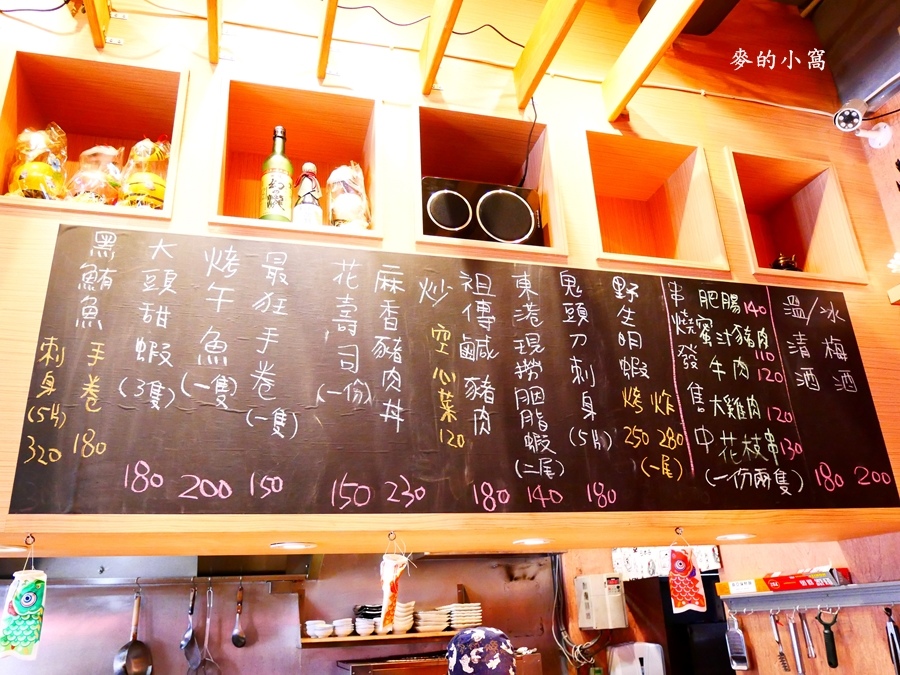 麥的小窩
溫/冰
清 梅
酒 酒
180 200
串燒發售中
肥腸 140
蜜汁豬肉 110
牛肉 120
大雞肉 120
花枝串 130
(一份兩隻)
野生明蝦
烤 炸
250 280
(一尾)
鬼頭刀刺身(5片)
180
東港現撈胭脂蝦(二尾)
140
祖傳鹹豬肉
180
炒空心菜120
麻香豬肉丼
230
花壽司(一份)
150
最狂手卷(一隻)
150
烤午魚(一隻)
200
大頭甜蝦(3隻)
180
黑鮪魚
手卷 180
刺身(5片) 320